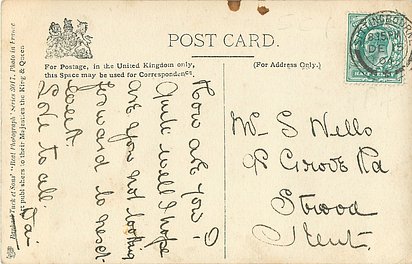 POST CARD.
For Postage, in the United Kingdom only,
this Space may be used for Correspondence.
(For Address Only.)
How are you?
Quite well I hope
are you not looking
forward to next
week.
Love to all.
Mr S Wells
Grove Rd
Strood
Kent.
Raphael Tuck & Sons' "Real Photograph" Series
publishers to their Majesties the King & Queen
8.15 PM
DE
HALFPENNY